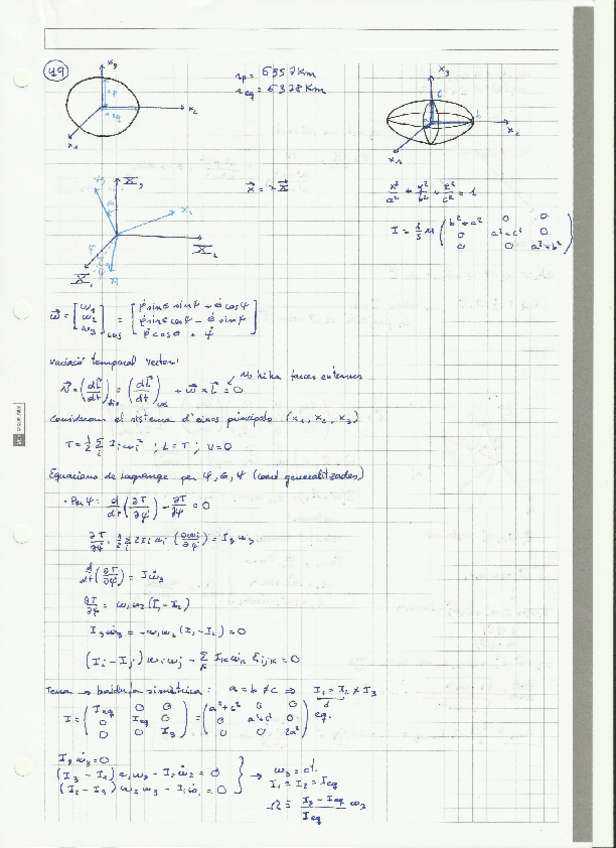 49
x₃
x₂
x₁
r_p = 6357 km
r_eq = 6378 km
x₃
c
b
x₂
x₁
X₃
X₂
X₁
x₁
x²/a² + y²/b² + z²/c² = 1
I = 1/5 M ( b²+c² 0 0
0 a²+c² 0
0 0 a²+b² )
ω⃗ = [ω₁ ω₂ ω₃]cos = [ φ̇ sinθ sinψ + θ̇ cosψ
φ̇ sinθ cosψ − θ̇ sinψ
φ̇ cosθ + ψ̇ ]
Variació temporal vector:
N⃗ = (dL⃗/dt)fix = (dL⃗/dt)cos + ω⃗ × L⃗ = 0
No hi ha forces externes
Considerem el sistema d'eixos principals (x₁, x₂, x₃)
T = 1/2 Σᵢ Iᵢ ωᵢ² ; L = T ; V = 0
Equacions de Lagrange per φ, θ, ψ (coord generalitzades)
· Per ψ: d/dt (∂T/∂ψ̇) − ∂T/∂ψ = 0
∂T/∂ψ̇ = 1/2 Σᵢ 2Iᵢ ωᵢ (∂ωᵢ/∂ψ̇) = I₃ ω₃
d/dt (∂T/∂ψ̇) = I ω̇₃
∂T/∂ψ = ω₁ω₂ (I₁ − I₂)
I₃ω̇₃ = −ω₁ω₂ (I₁ − I₂) = 0
(Iᵢ − Iⱼ) ωᵢ ωⱼ − Σₖ Iₖ ω̇ₖ εᵢⱼₖ = 0
Terra → baldufa simètrica: a = b ≠ c ⇒ I₁ = I₂ ≠ I₃
eq.
I = ( I_eq 0 0
0 I_eq 0
0 0 I₃ ) = ( a²+c² 0 0
0 a²+c² 0
0 0 2a² )
I₃ ω̇₃ = 0
(I₃ − I₁) ω₁ω₃ − I₂ω̇₂ = 0
(I₂ − I₃) ω₂ω₃ − I₁ω̇₁ = 0
→ ω₃ = ct.
I₁ = I₂ = I_eq
Ω ≡ (I₃ − I_eq)/I_eq ω₃